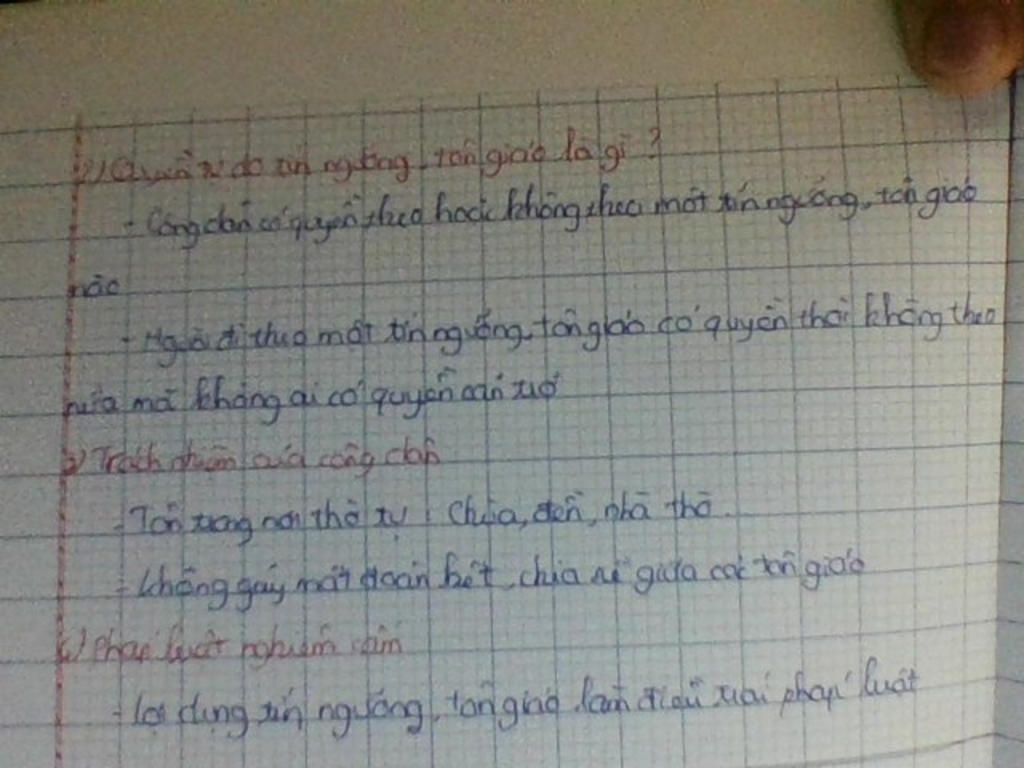 2) Quyền tự do tín ngưỡng, tôn giáo là gì?
- Công dân có quyền theo hoặc không theo một tín ngưỡng, tôn giáo
nào
- Người đi theo một tín ngưỡng, tôn giáo có quyền thôi không theo
nữa mà không ai có quyền cản trở
3) Trách nhiệm của công dân
- Tôn trọng nơi thờ tự: chùa, đền, nhà thờ.
- Không gây mất đoàn kết, chia rẽ giữa các tôn giáo
4) Pháp luật nghiêm cấm
- Lợi dụng tín ngưỡng, tôn giáo làm điều trái pháp luật